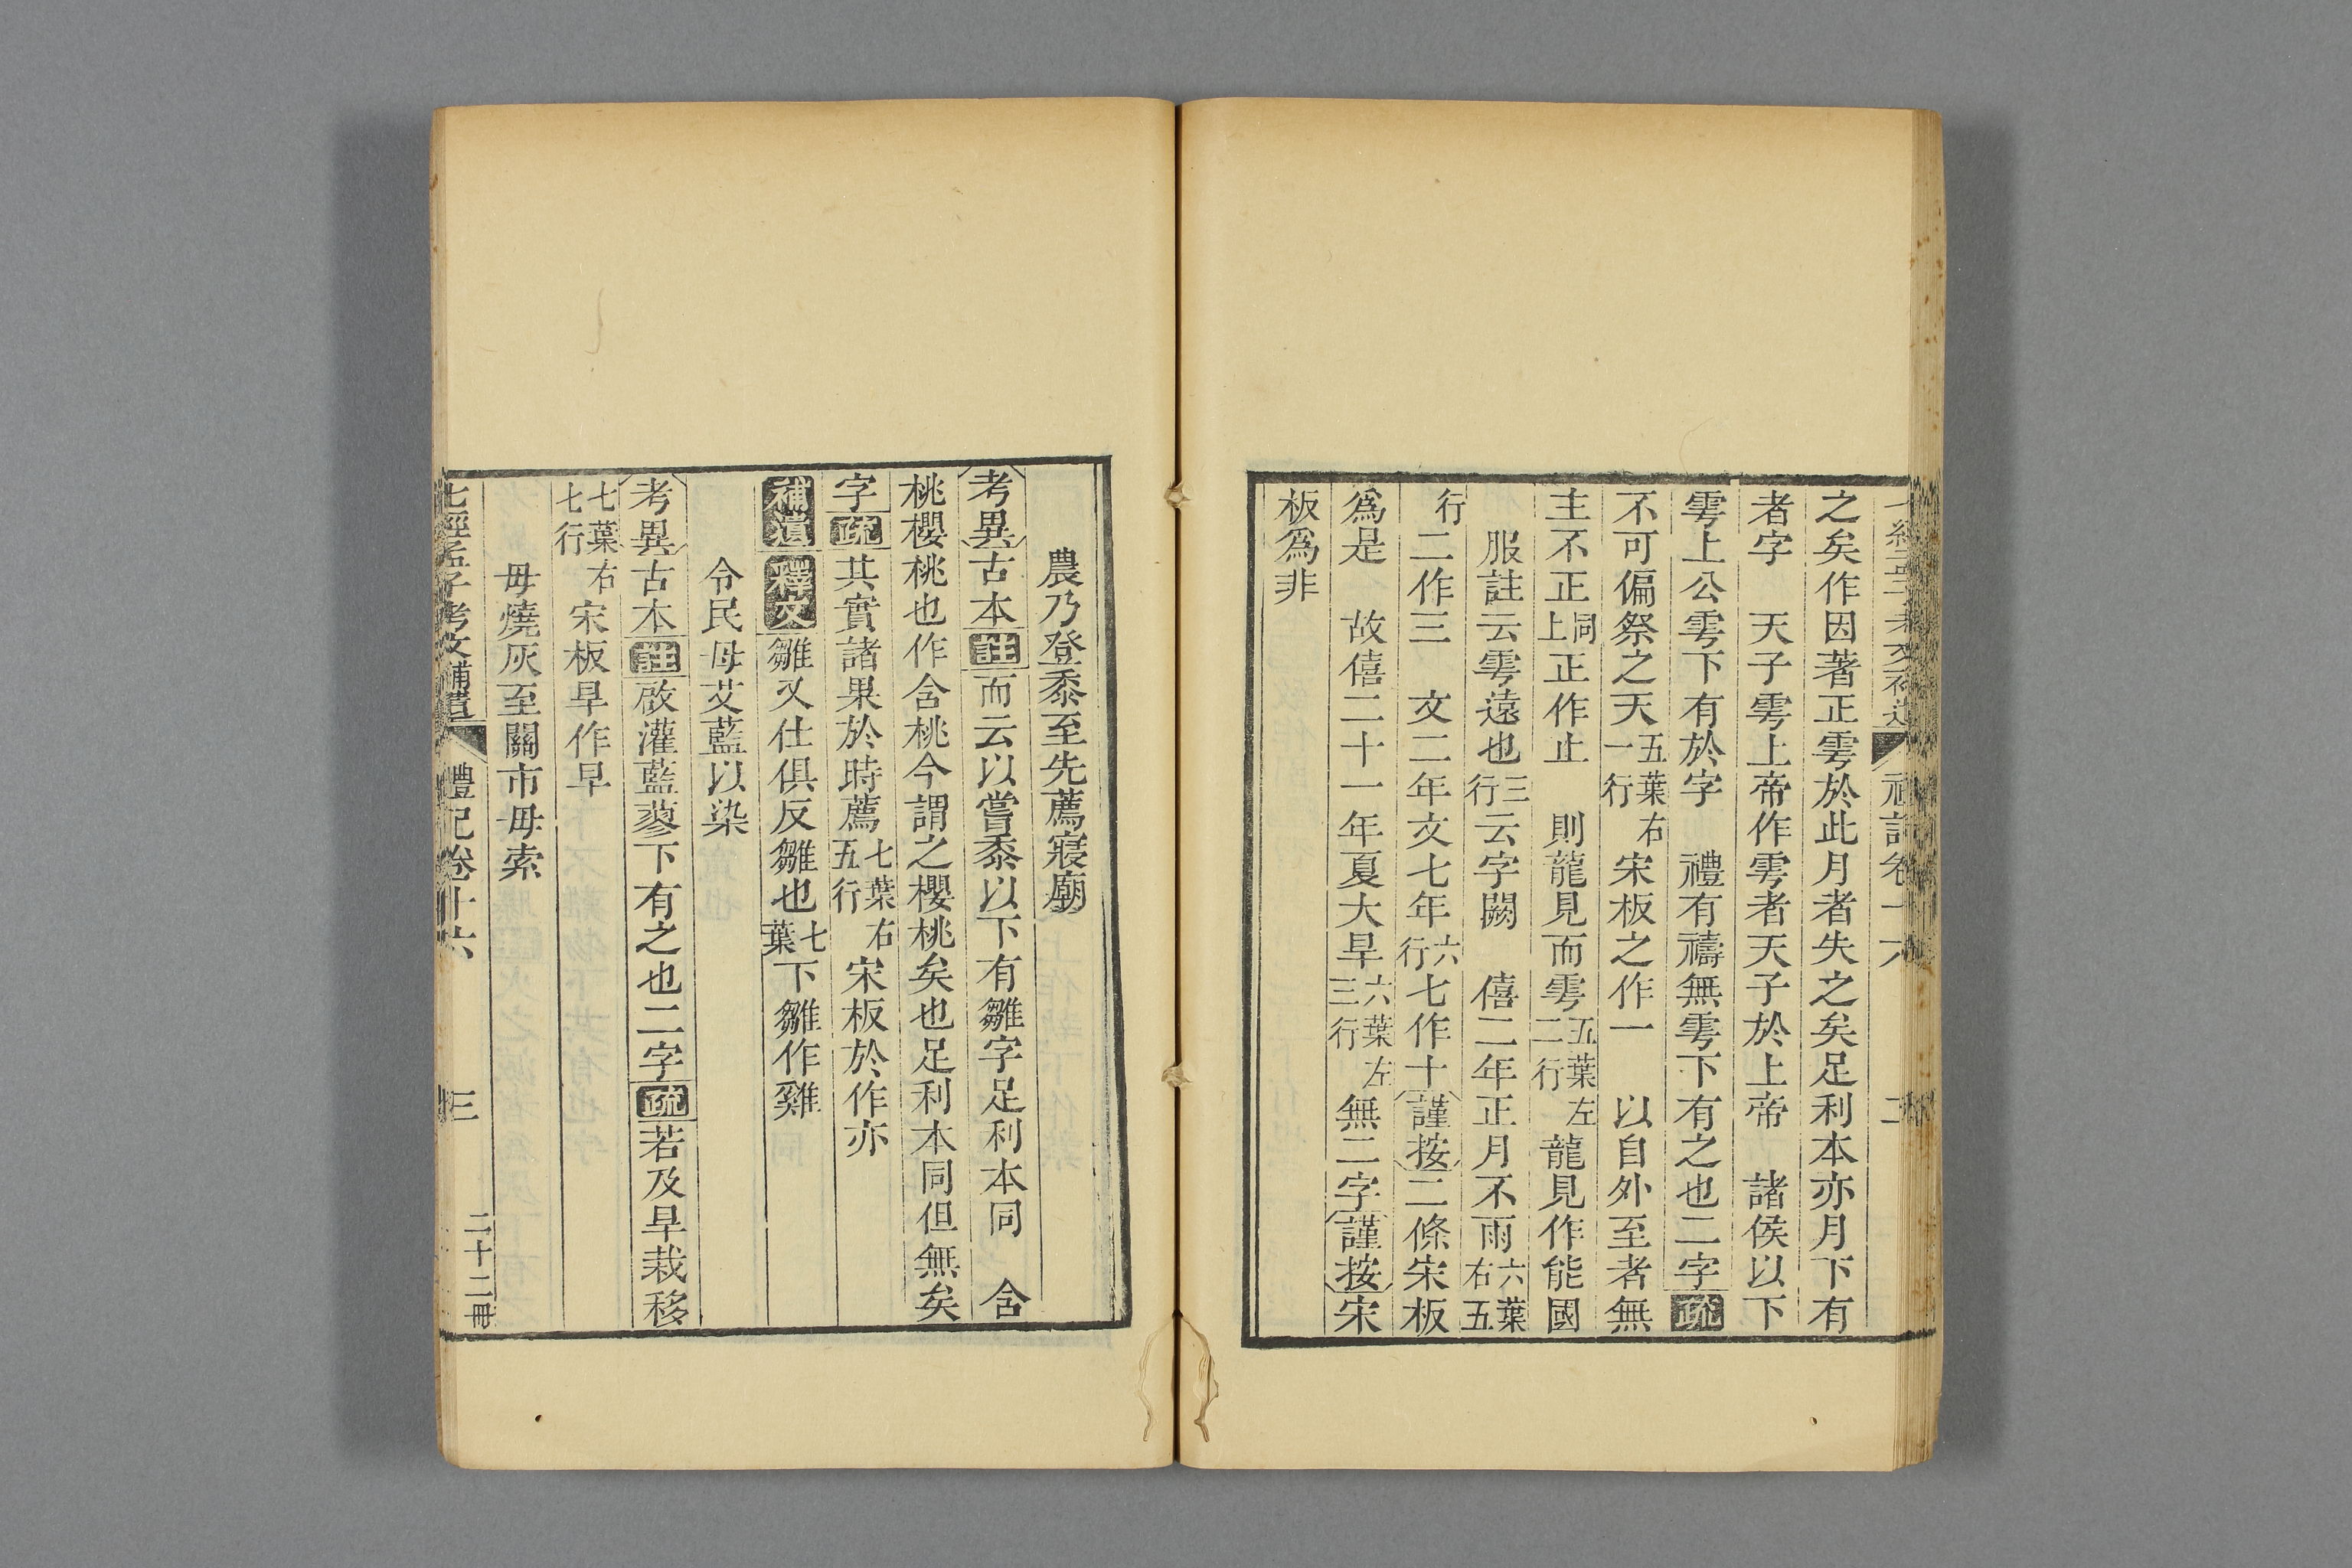 之矣作因著正雩於此月者失之矣足利本亦月下有
者字　天子雩上帝作雩者天子於上帝　諸侯以下
雩上公雩下有於字　禮有禱無雩下有之也二字疏
不可偏祭之天五葉右一行　宋板之作一　以自外至者無
主不正同上正作止　則龍見而雩五葉左二行　龍見作能國
服註云雩遠也三行云字闕　僖二年正月不雨六葉右五
行二作三　文二年文七年六行七作十謹按二條宋板
爲是　故僖二十一年夏大旱六葉左三行　無二字謹按宋
板爲非
農乃登黍至先薦寢廟
考異古本註而云以嘗黍以下有雛字足利本同　含
桃櫻桃也作含桃今謂之櫻桃矣也足利本同但無矣
字疏其實諸果於時薦七葉右五行　宋板於作亦
補遺釋文雛叉仕俱反雛也七葉下雛作雞
令民毋艾藍以染
考異古本註啟灌藍蓼下有之也二字疏若及早栽移
七葉右七行　宋板早作旱
毋燒灰至關市毋索
七經孟子考文補遺　禮記卷十六　三　二十二冊